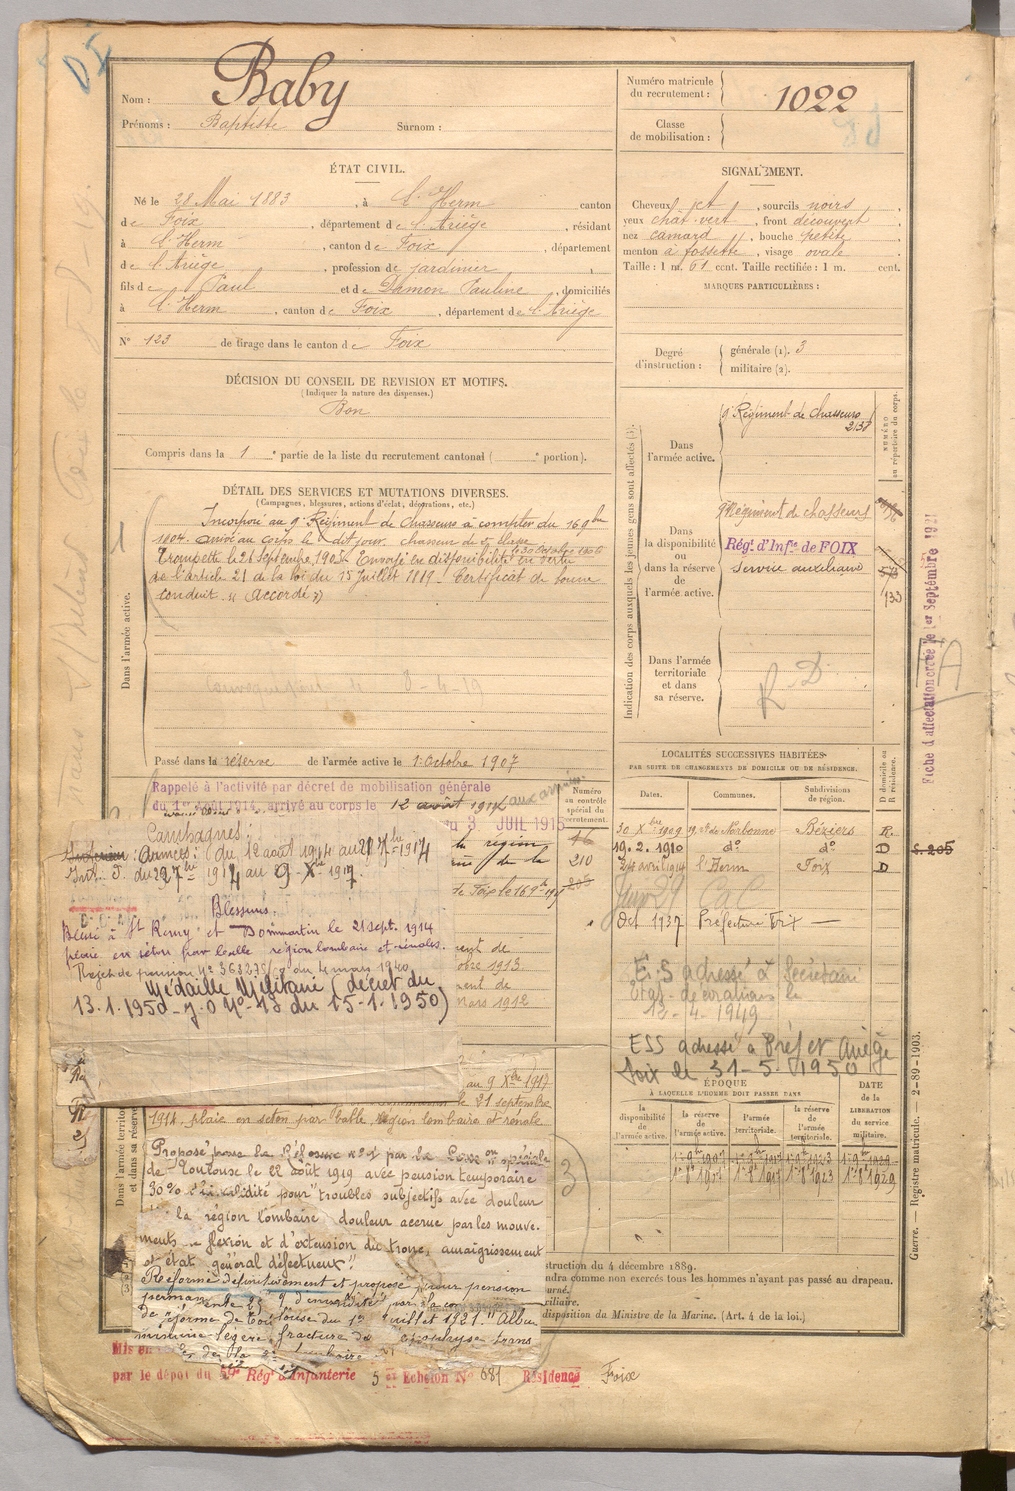 Nom : Baby
Prénoms : Baptiste Surnom :
Numéro matricule du recrutement : 1022
Classe de mobilisation :
ÉTAT CIVIL.
Né le 28 Mai 1883, à l'Herm canton
de Foix, département de l'Ariège, résidant
à l'Herm, canton de Foix, département
de l'Ariège, profession de jardinier,
fils de Paul et de Damon Pauline, domiciliés
à l'Herm, canton de Foix, département de l'Ariège
N° 123 de tirage dans le canton de Foix
DÉCISION DU CONSEIL DE REVISION ET MOTIFS.
(Indiquer la nature des dispenses.)
Bon
Compris dans la 1 partie de la liste du recrutement cantonal ( portion).
SIGNALEMENT.
Cheveux jet, sourcils noirs,
yeux chat. vert, front découvert
nez camard, bouche petite,
menton à fossette, visage ovale
Taille : 1 m. 61 cent. Taille rectifiée : 1 m. cent.
MARQUES PARTICULIÈRES :
Degré d'instruction : générale (1). 3
militaire (2).
DÉTAIL DES SERVICES ET MUTATIONS DIVERSES.
(Campagnes, blessures, actions d'éclat, décorations, etc.)
Incorporé au 9e Régiment de Chasseurs à compter du 16 9bre
1904. arrivé au corps le dit jour. chasseur de 2e classe
Trompette le 21 Septembre 1905. Envoyé en disponibilité en vertu
de l'article 21 de la loi du 15 juillet 1889. Certificat de bonne
conduite "accordé"
Dans l'armée active.
Passé dans la réserve de l'armée active le 1 Octobre 1907
Rappelé à l'activité par décret de mobilisation générale
du 1er août 1914, arrivé au corps le 12 août 1914 aux armées
du 3 JUIL 1915
Indication des corps auxquels les jeunes gens sont affectés (3).
Dans l'armée active.
9e Régiment de Chasseurs
2130
NUMÉRO au répertoire du corps.
Dans la disponibilité ou dans la réserve de l'armée active.
9e Régiment de chasseurs
Régt d'Infie de FOIX
Service auxiliaire
133
Dans l'armée territoriale et dans sa réserve.
R D
Fiche d'affectation créée le 1er Septembre 1921
LOCALITÉS SUCCESSIVES HABITÉES
PAR SUITE DE CHANGEMENTS DE DOMICILE OU DE RÉSIDENCE.
Dates. Communes. Subdivisions de région. D domicile ou R résidence.
Numéro au contrôle spécial du recrutement.
30 Xbre 1909 Narbonne Béziers R
19. 2. 1910 do do D
24 avril 1914 l'Herm Foix D
Oct 1937 Préfecture Foix
210
S. 205
12-4-1949
ESS adressé à Préfet Ariège
Foix le 31-5-1950
ÉPOQUE
À LAQUELLE L'HOMME DOIT PASSER DANS
la disponibilité de l'armée active. la réserve de l'armée active. l'armée territoriale. la réserve de l'armée territoriale. DATE DE LA LIBÉRATION du service militaire.
1er 9bre 1907 1er 9bre 1917 1er 9bre 1923 1er 9bre 1929
1er 8bre 1907 1er 8bre 1917 1er 8bre 1923 1er 8bre 1929
Campagnes :
Intérieur : Armées : du 12 août 1914 au 27 7bre 1914
Int. du 27 7bre 1914 au 9 Xbre 1917.
Blessures.
Blessé à St Remy et Dommartin le 21 sept. 1914
plaie en séton par balle région lombaire et rénales.
Projet de pension N° 363275/ du 4 mars 1940
Médaille Militaire (décret du
13.1.1950 - J.O N° 13 du 15-1-1950)
de Foix le 16 9bre
ment de
bre 1913.
ment de
Mars 1912
au 9 Xbre 1917
le 21 septembre
1914, plaie en séton par balle, région lombaire et rénale
Proposé pour la Réforme n° 1 par la Common spéciale
de Toulouse le 22 août 1919 avec pension temporaire
30% d'invalidité pour "troubles subjectifs avec douleur
la région lombaire, douleur accrue par les mouve-
ments de flexion et d'extension du tronc, amaigrissement
et état général défectueux".
Réformé définitivement et proposé pour pension
permanente d'invalidité par la com
de réforme de Toulouse du 1er juillet 1921. "Albu
minurie légère, fracture de apophyse trans
3
struction du 4 décembre 1889.
ndra comme non exercés tous les hommes n'ayant pas passé au drapeau.
disposition du Ministre de la Marine. (Art. 4 de la loi.)
Mis en
par le dépôt du 59e Régt d'Infanterie 5 er Echelon N° 681 Résidence Foix
Guerre. — Registre matricule. — 2-89-1903.